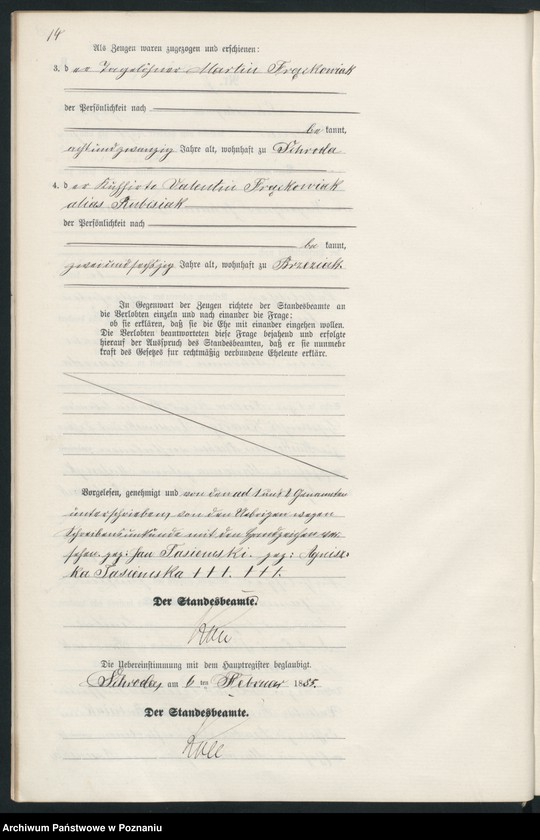 14
Als Zeugen waren zugezogen und erschienen:
3. der Tagelöhner Martin Frąckowiak
der Persönlichkeit nach
bekannt,
achtundzwanzig Jahre alt, wohnhaft zu Schroda
4. der Kuhhirte Valentin Frąckowiak
alias Rubisiak
der Persönlichkeit nach
bekannt,
zweiundsechzig Jahre alt, wohnhaft zu Brzeziak
In Gegenwart der Zeugen richtete der Standesbeamte an
die Verlobten einzeln und nach einander die Frage:
ob sie erklären, daß sie die Ehe mit einander eingehen wollen.
Die Verlobten beantworteten diese Frage bejahend und erfolgte
hierauf der Ausspruch des Standesbeamten, daß er sie nunmehr
kraft des Gesetzes für rechtmäßig verbundene Eheleute erkläre.
Vorgelesen, genehmigt und von den ad 1 und 2 Genannten
unterschrieben, von den Uebrigen wegen
Schreibensunkunde mit den Handzeichen ver-
sehen. gez: Jan Tasiemski. gez: Agnisz-
ka Tasiemska +++. +++.
Der Standesbeamte.
Die Uebereinstimmung mit dem Hauptregister beglaubigt.
Schroda, am 6 ten Februar 1885.
Der Standesbeamte.
Archiwum Państwowe w Poznaniu